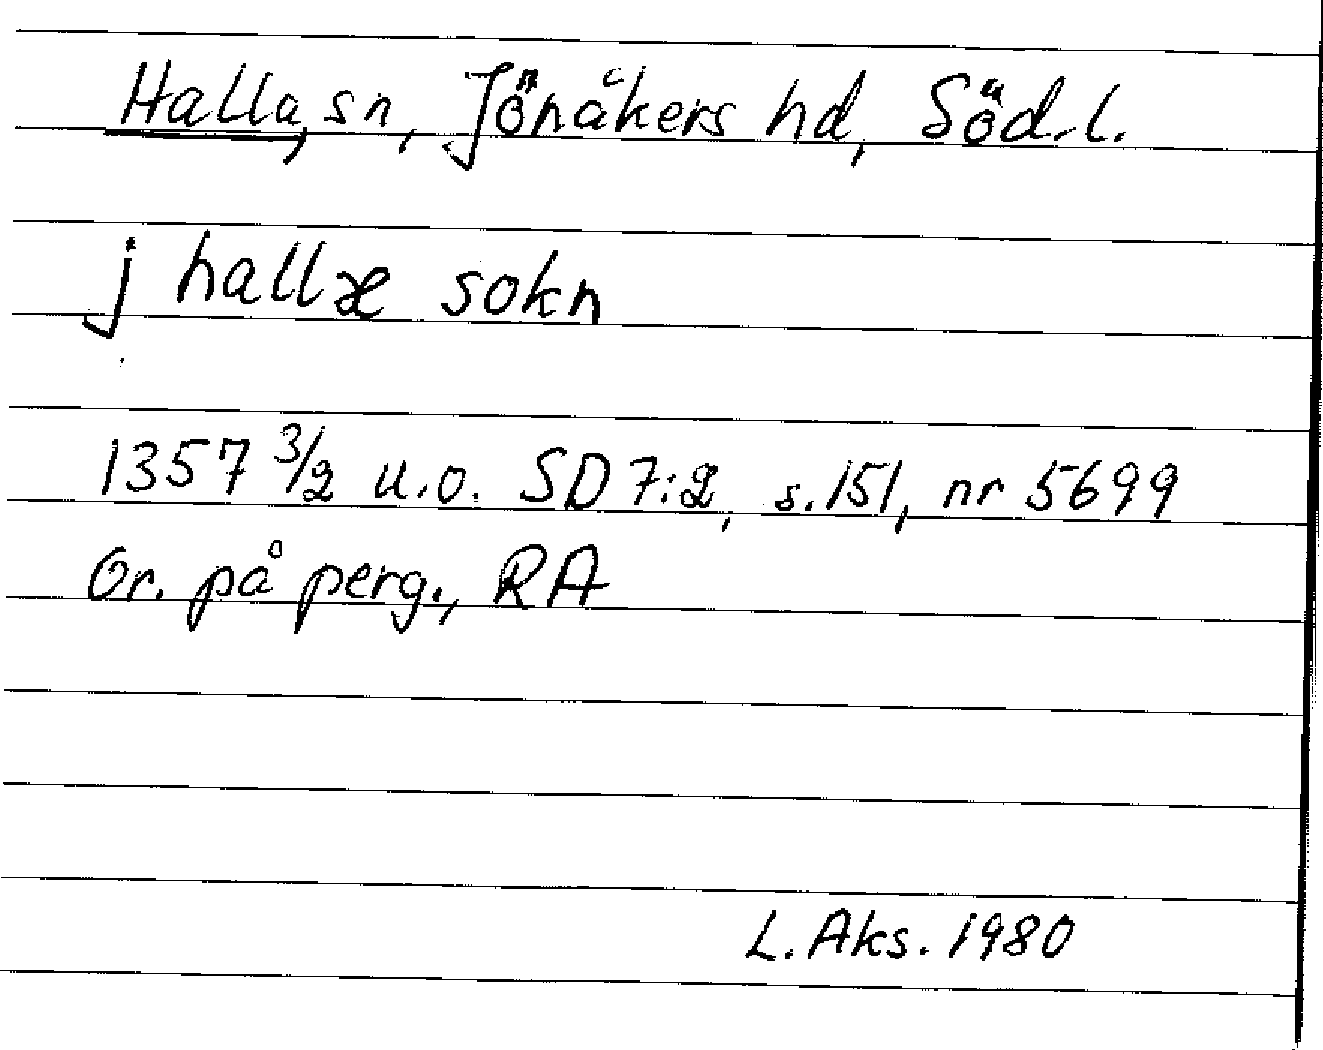 Halla, sn, Jönåkers hd, Söd.l.
j hallæ sokn
1357 3/2 u.o. SD 7:2, s. 151, nr 5699
Or. på perg., RA
L. Aks. 1980